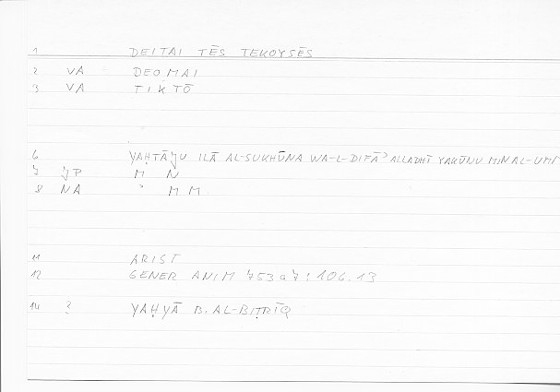 1 DEITAI TĒS TEKOYSĒS
2 VA DEOMAI
3 VA TIKTŌ
6 YAḤTĀǦU ILĀ AL-SUKHŪNA WA-L-DIFĀʾ ALLADHĪ YAKŪNU MIN AL-UMM
7 ǦP M N
8 NA ʾ M M
11 ARIST
12 GENER ANIM 753a7 : 106.13
14 ? YAḤYĀ B. AL-BIṬRĪQ